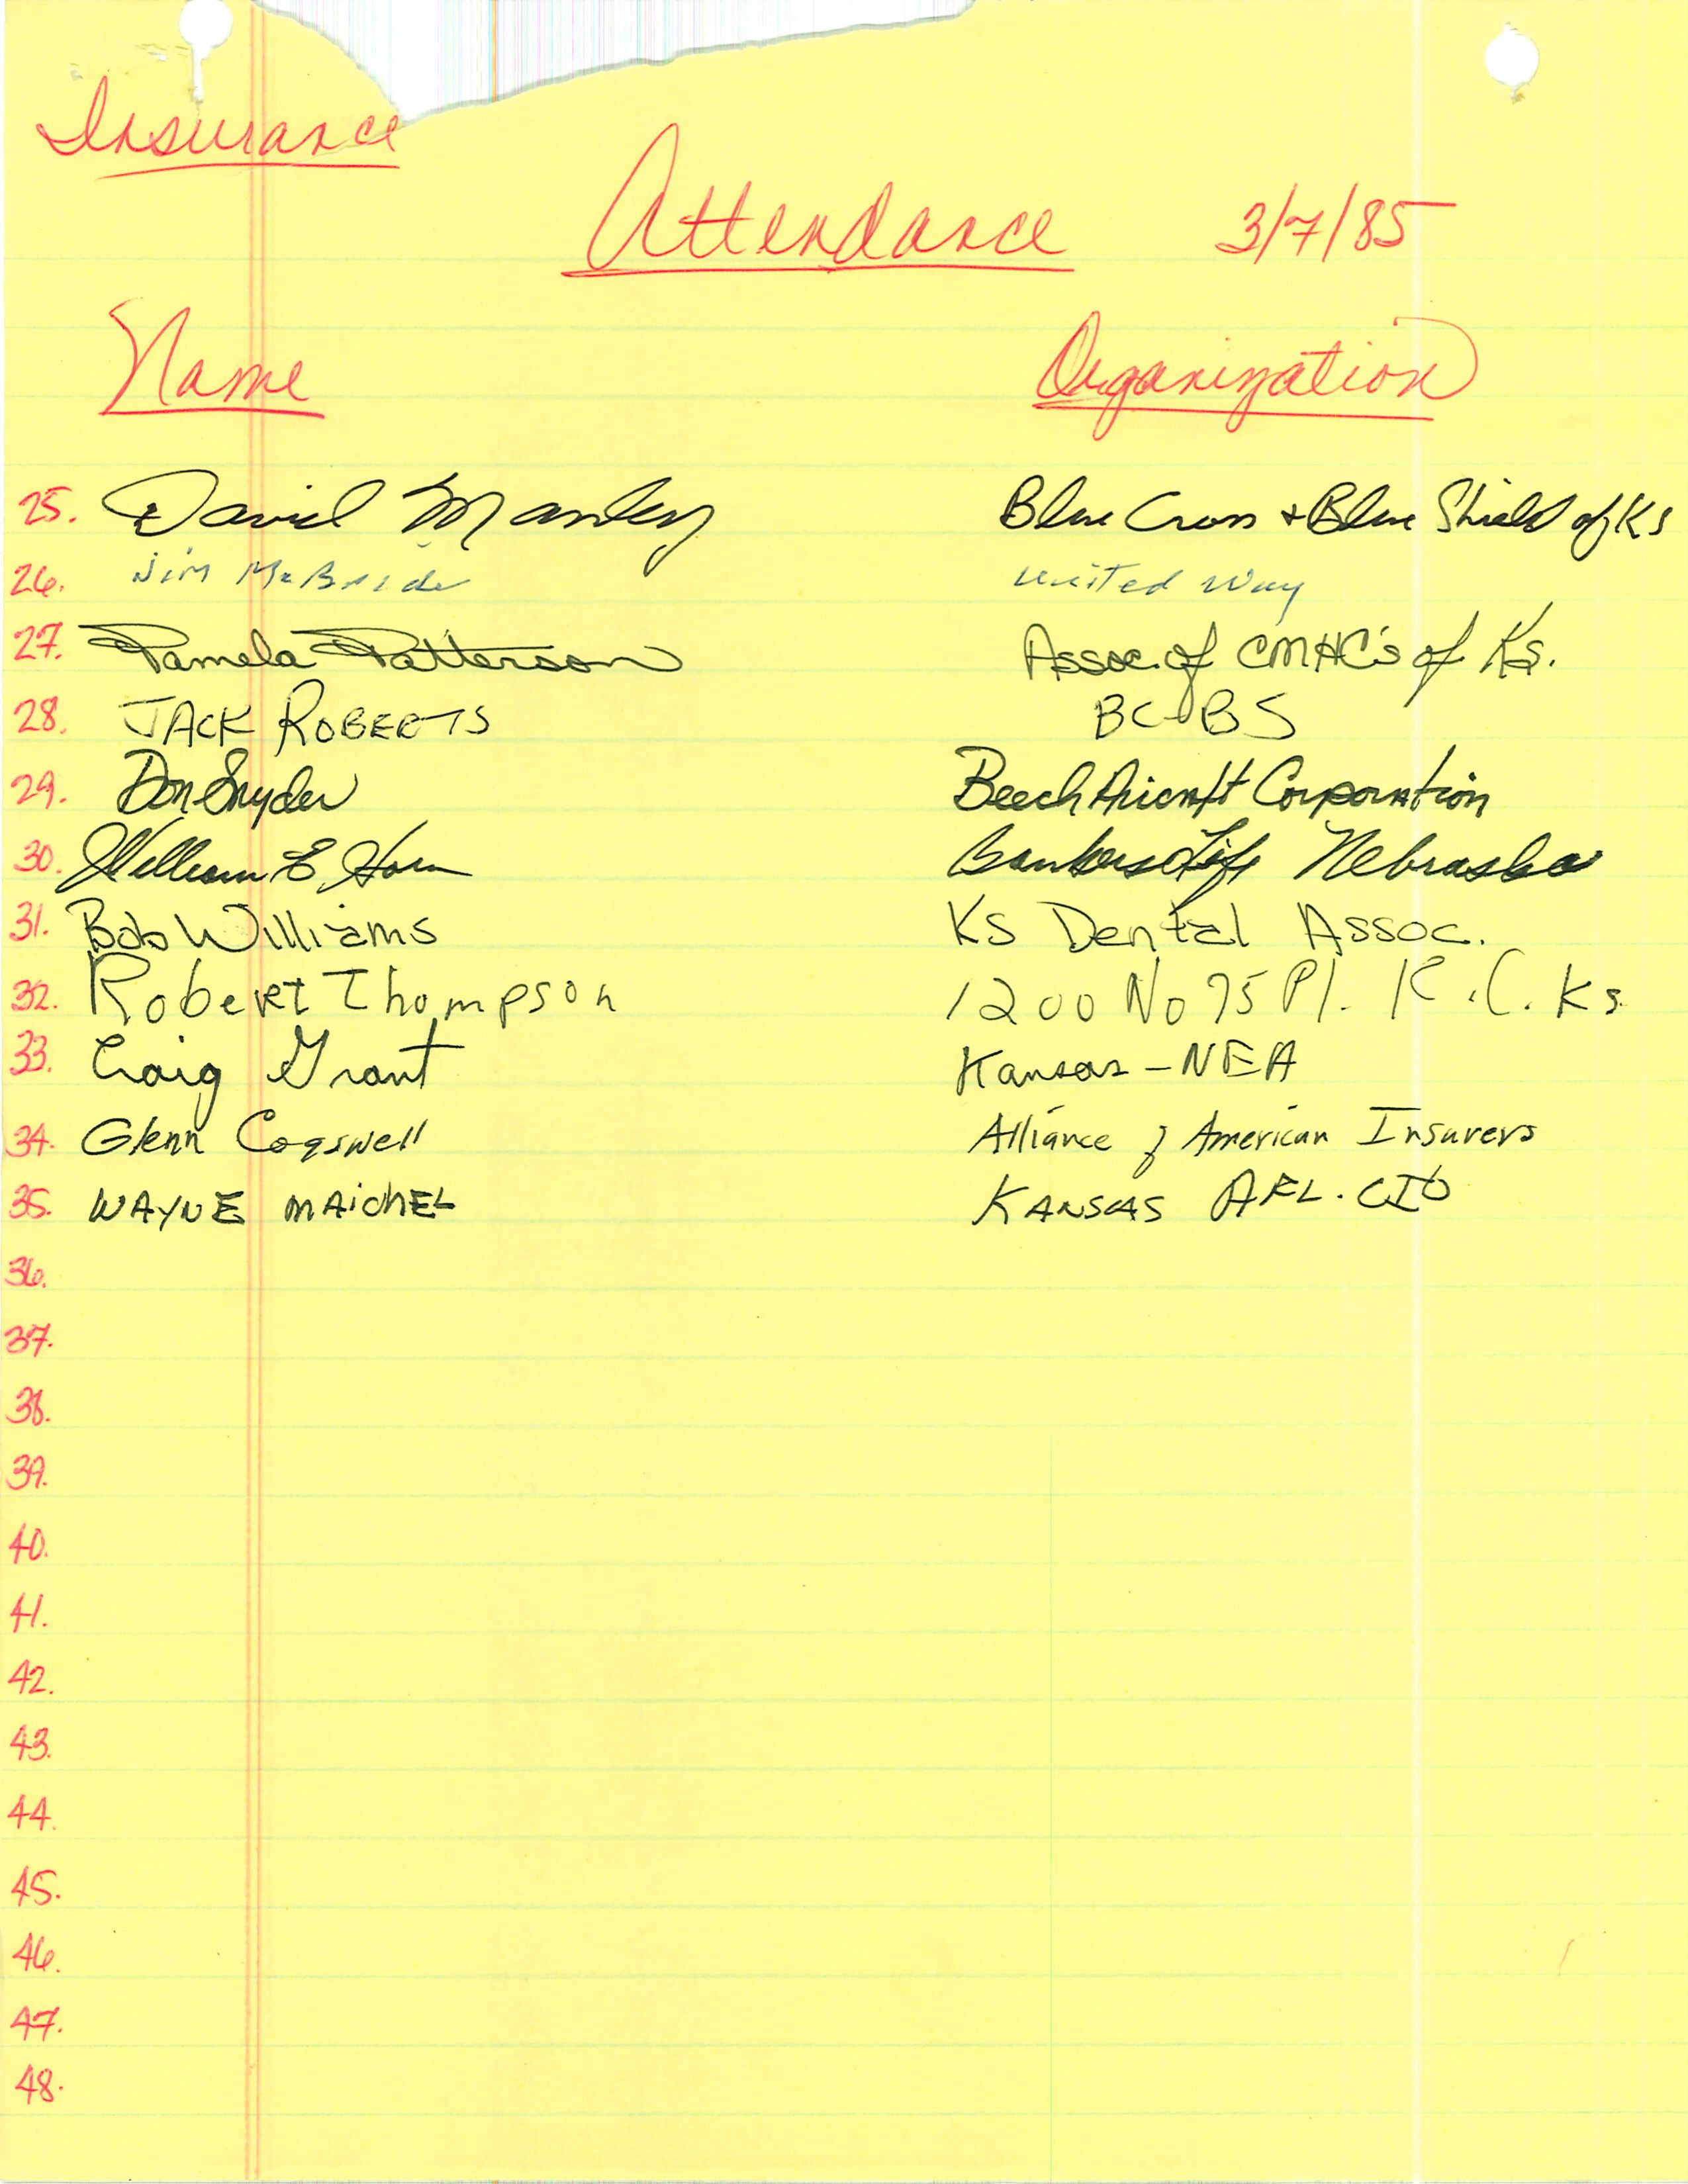 Insurance
Attendance 3/7/85
Name Organization
25. David Manley Blue Cross + Blue Shield of KS
26. Jim McBride United Way
27. Pamela Patterson Assoc. of CMHC's of Ks.
28. JACK ROBERTS BC-BS
29. Don Snyder Beech Aircraft Corporation
30. William E. Bankers Life Nebraska
31. Bob Williams KS Dental Assoc.
32. Robert Thompson 1200 No 75 Pl. K.C. Ks.
33. Craig Grant Kansas-NEA
34. Glenn Cogswell Alliance of American Insurers
35. WAYNE MAICHEL KANSAS AFL-CIO
36.
37.
38.
39.
40.
41.
42.
43.
44.
45.
46.
47.
48.